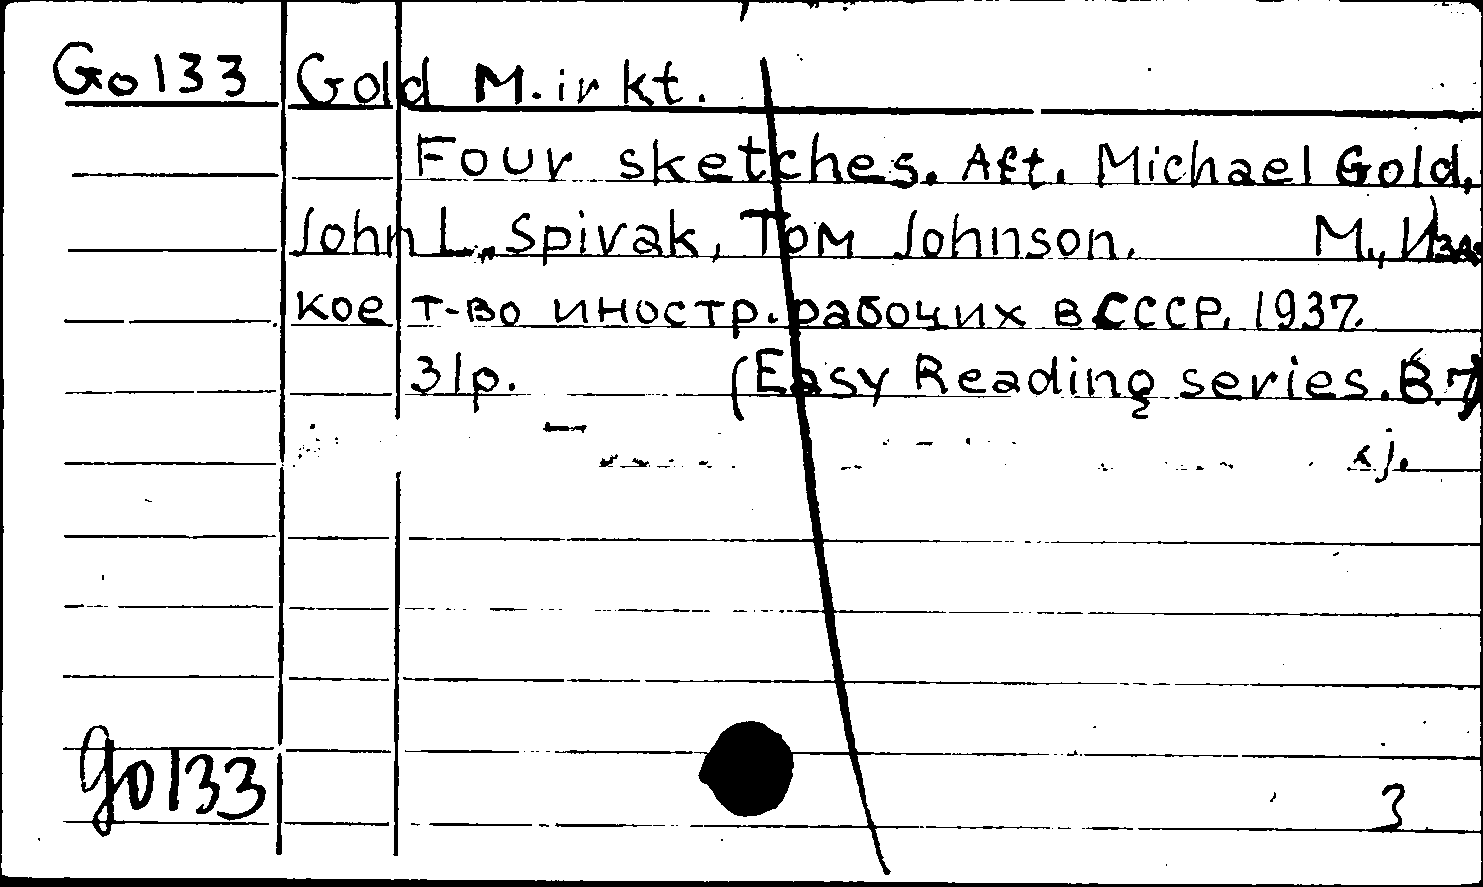 Go133 Gold M. ir kt.
Four sketches. Aft. Michael Gold,
John L. Spivak, Tom Johnson. M., Изд
кое т-во иностр. рабочих в СССР, 1937.
31p. (Easy Reading series. B.7)
go133
3